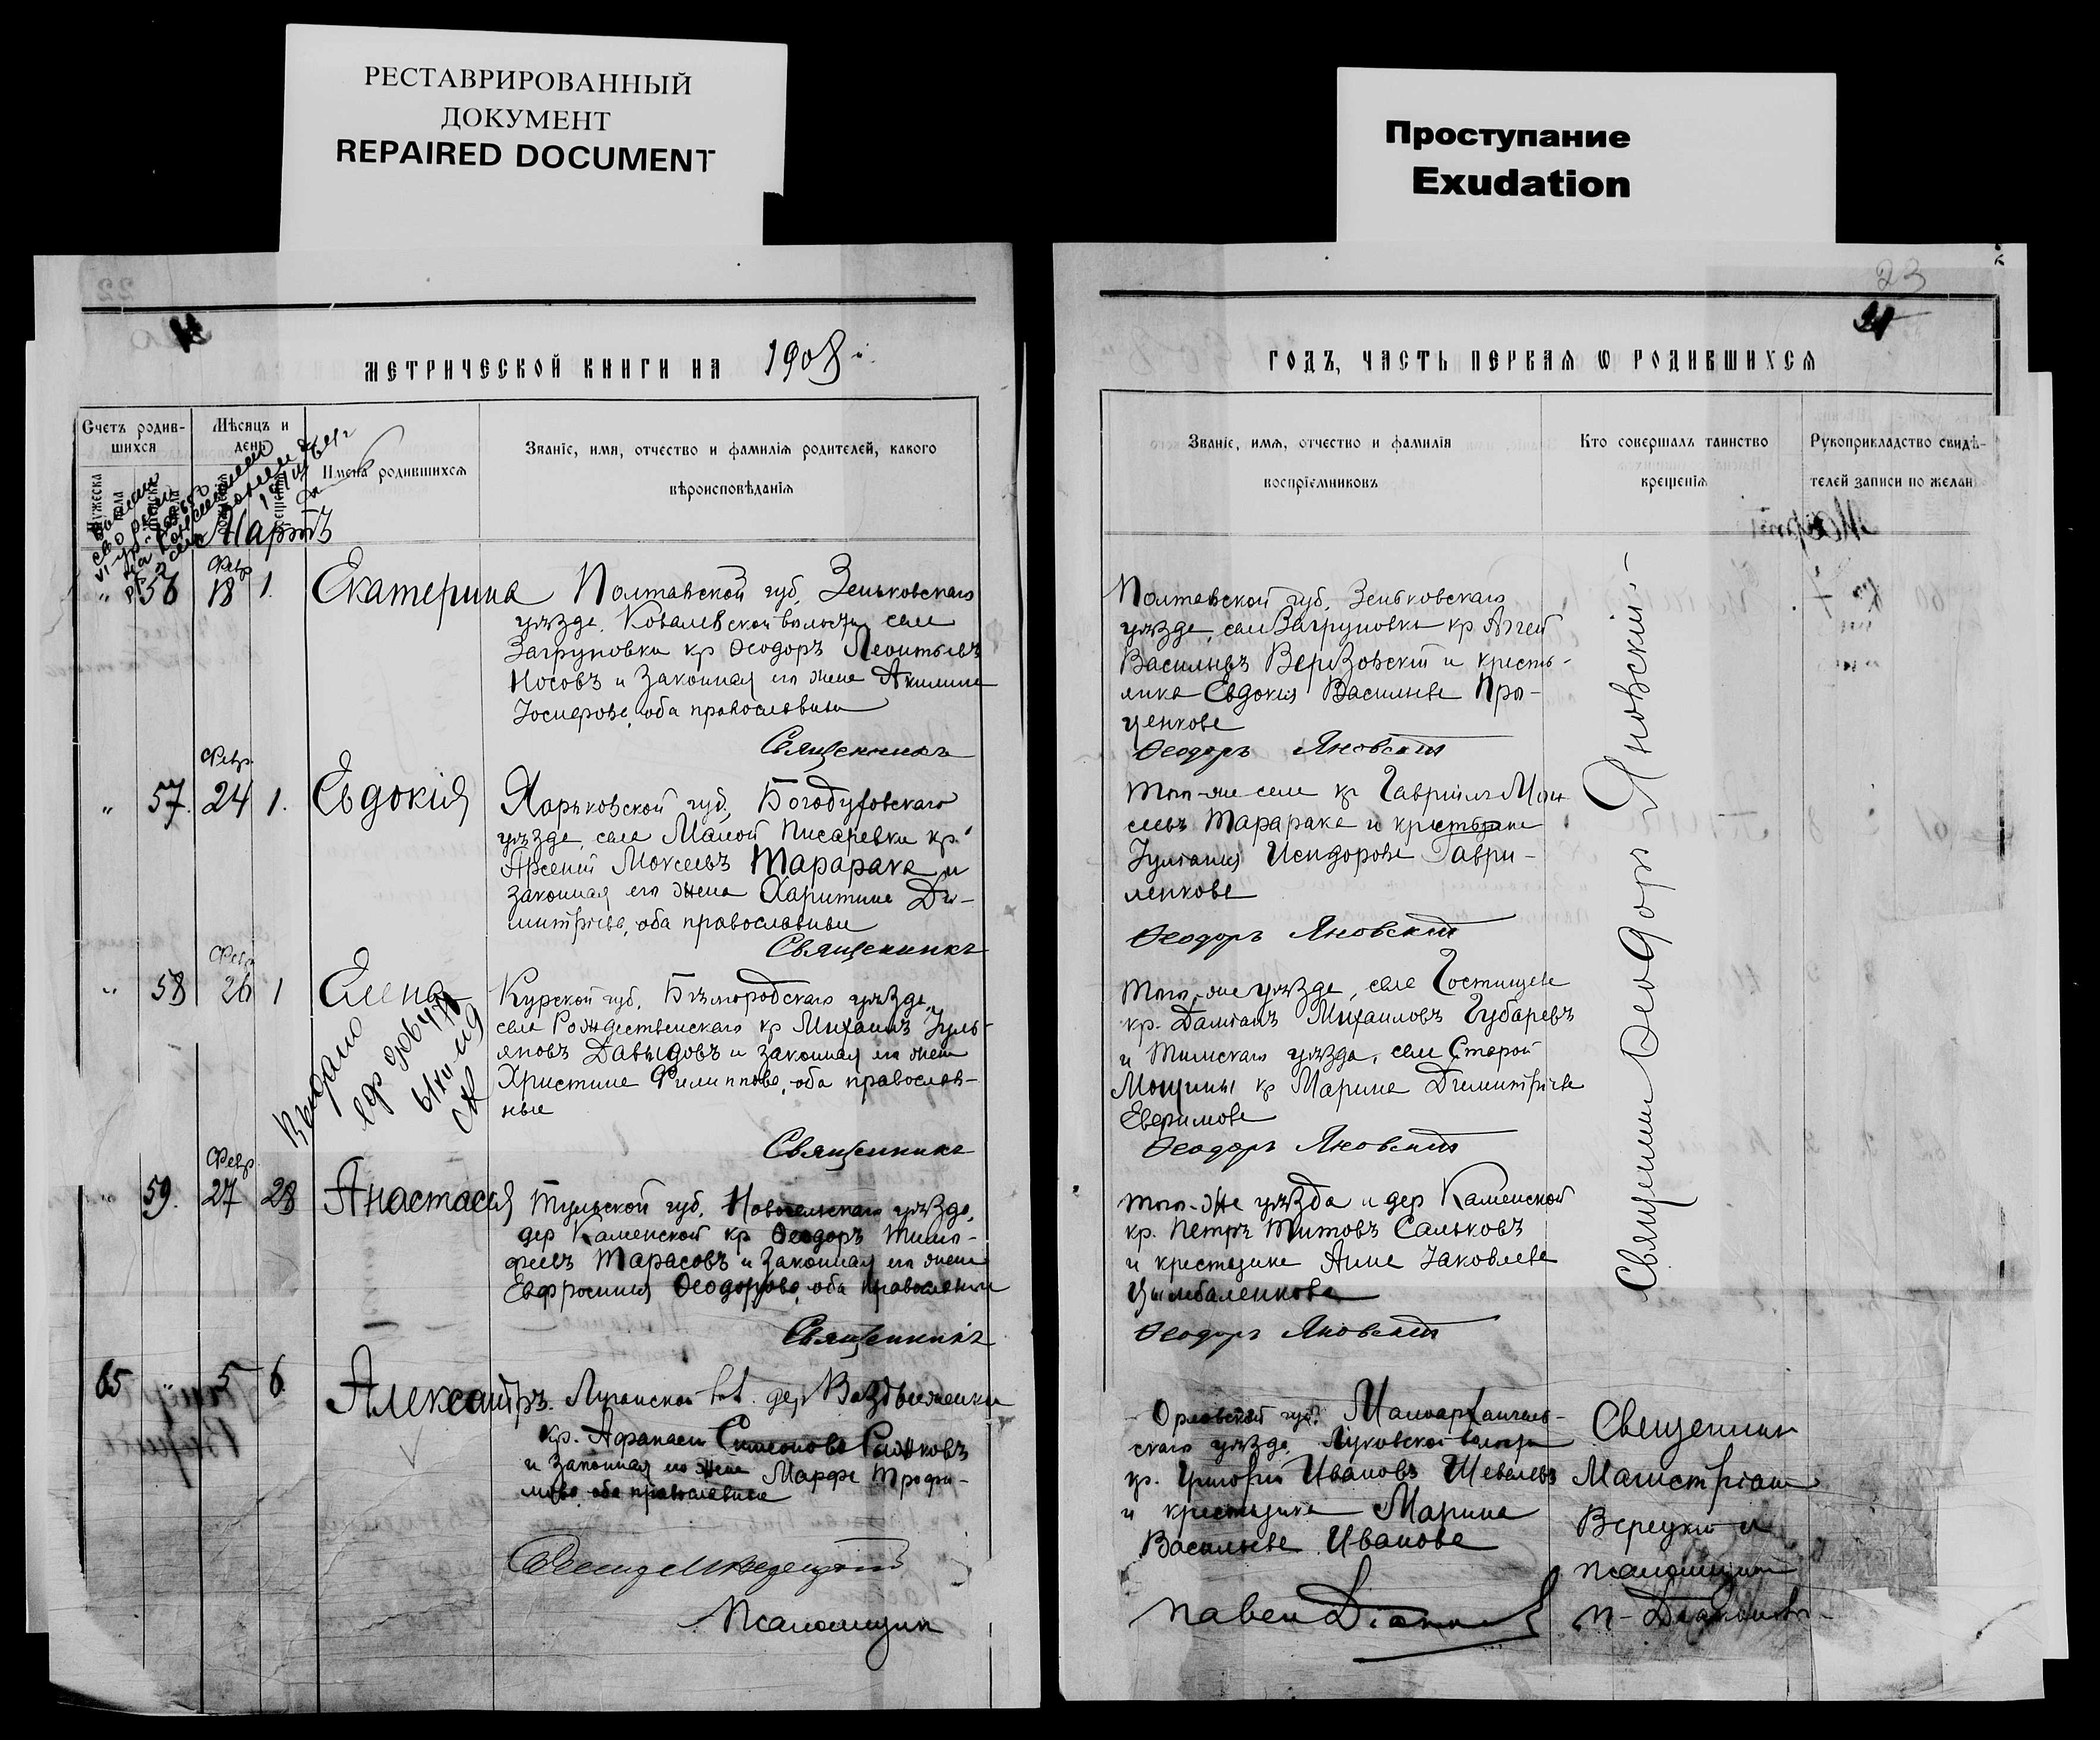 РЕСТАВРИРОВАННЫЙ
ДОКУМЕНТ
REPAIRED DOCUMENT
Проступание
Exudation
23
МЕТРИЧЕСКОЙ КНИГИ НА 1908
ГОДЪ, ЧАСТЬ ПЕРВАЯ Ѡ РОДИВШИХСЯ
Счетъ родив-
шихся
Мужеска
пола
Мѣсяцъ и
день
Имена родившихся
Званіе, имя, отчество и фамилія родителей, какого
вѣроисповѣданія
Званіе, имя, отчество и фамилія
воспріемниковъ
Кто совершалъ таинство
крещенія
Рукоприкладство свидѣ-
телей записи по желан
Мартъ
Февр
" 56 18 1. Екатерина Полтавской губ. Зеньковскаго
уѣзда, Ковалевской волости села
Загруновки кр Ѳеодоръ Леонтьевъ
Носовъ и законная его жена Акилина
оба православные
Священникъ
Полтавской губ. Зеньковскаго
уѣзда, села Загруновки кр Аггей
Васильевъ Верезовскій и кресть-
янка Евдокія Васильева Про-
ценкова
Ѳеодоръ Яновскій
Февр
" 57. 24 1. Евдокія Харьковской губ., Богодуховскаго
уѣзда, села Малой Писаревки кр.
Арсеній Моисеевъ Тарарака и
законная его жена Харитина Ди-
митріева, оба православные
Священникъ
Того-же села кр Гавріилъ Мои
сеевъ Тарарака и крестьянка
Іуліанія Исидорова Гаври-
ленкова
Ѳеодоръ Яновскій
Февр
" 58 26 1 Елена Курской губ. Бѣлгородскаго уѣзда,
села Рождественскаго кр Михаилъ Іуль-
яновъ Давыдовъ и законная его жена
Христина Филиппова, оба православ-
ные
Священникъ
Выдано
Того-же уѣзда, села Гостищева
кр. Даміанъ Михаиловъ Губаревъ
и Тимскаго уѣзда, села Старой
кр Марина Димитріева
Ефимова
Ѳеодоръ Яновскій
Февр
59. 27 28 Анастасія Тульской губ. Новосильскаго уѣзда,
дер Каменской кр Ѳеодоръ Тимо-
феевъ Тарасовъ и законная его жена
Евфросинія Ѳеодорова, оба православные
Священникъ
Того-же уѣзда и дер Каменской
кр. Петръ Титовъ Сальковъ
и крестьянка Анна Іаковлева
Цымбаленкова
Ѳеодоръ Яновскій
Священникъ Ѳеодоръ Яновскій
65 " 5 6. Александръ. Луганской вол. дер Воздвиженки
кр. Афанасій Симеоновъ
и законная его жена Марфа Трофи-
мова, оба православные
Псаломщикъ
Орловской губ. Малоархангель-
скаго уѣзда, Луковской волости
кр. Григорій Ивановъ Шевелевъ
и крестьянка Марина
Васильева Иванова
Павелъ Діаконовъ
Священникъ
Верецкій и
псаломщикъ
П. Діаконовъ